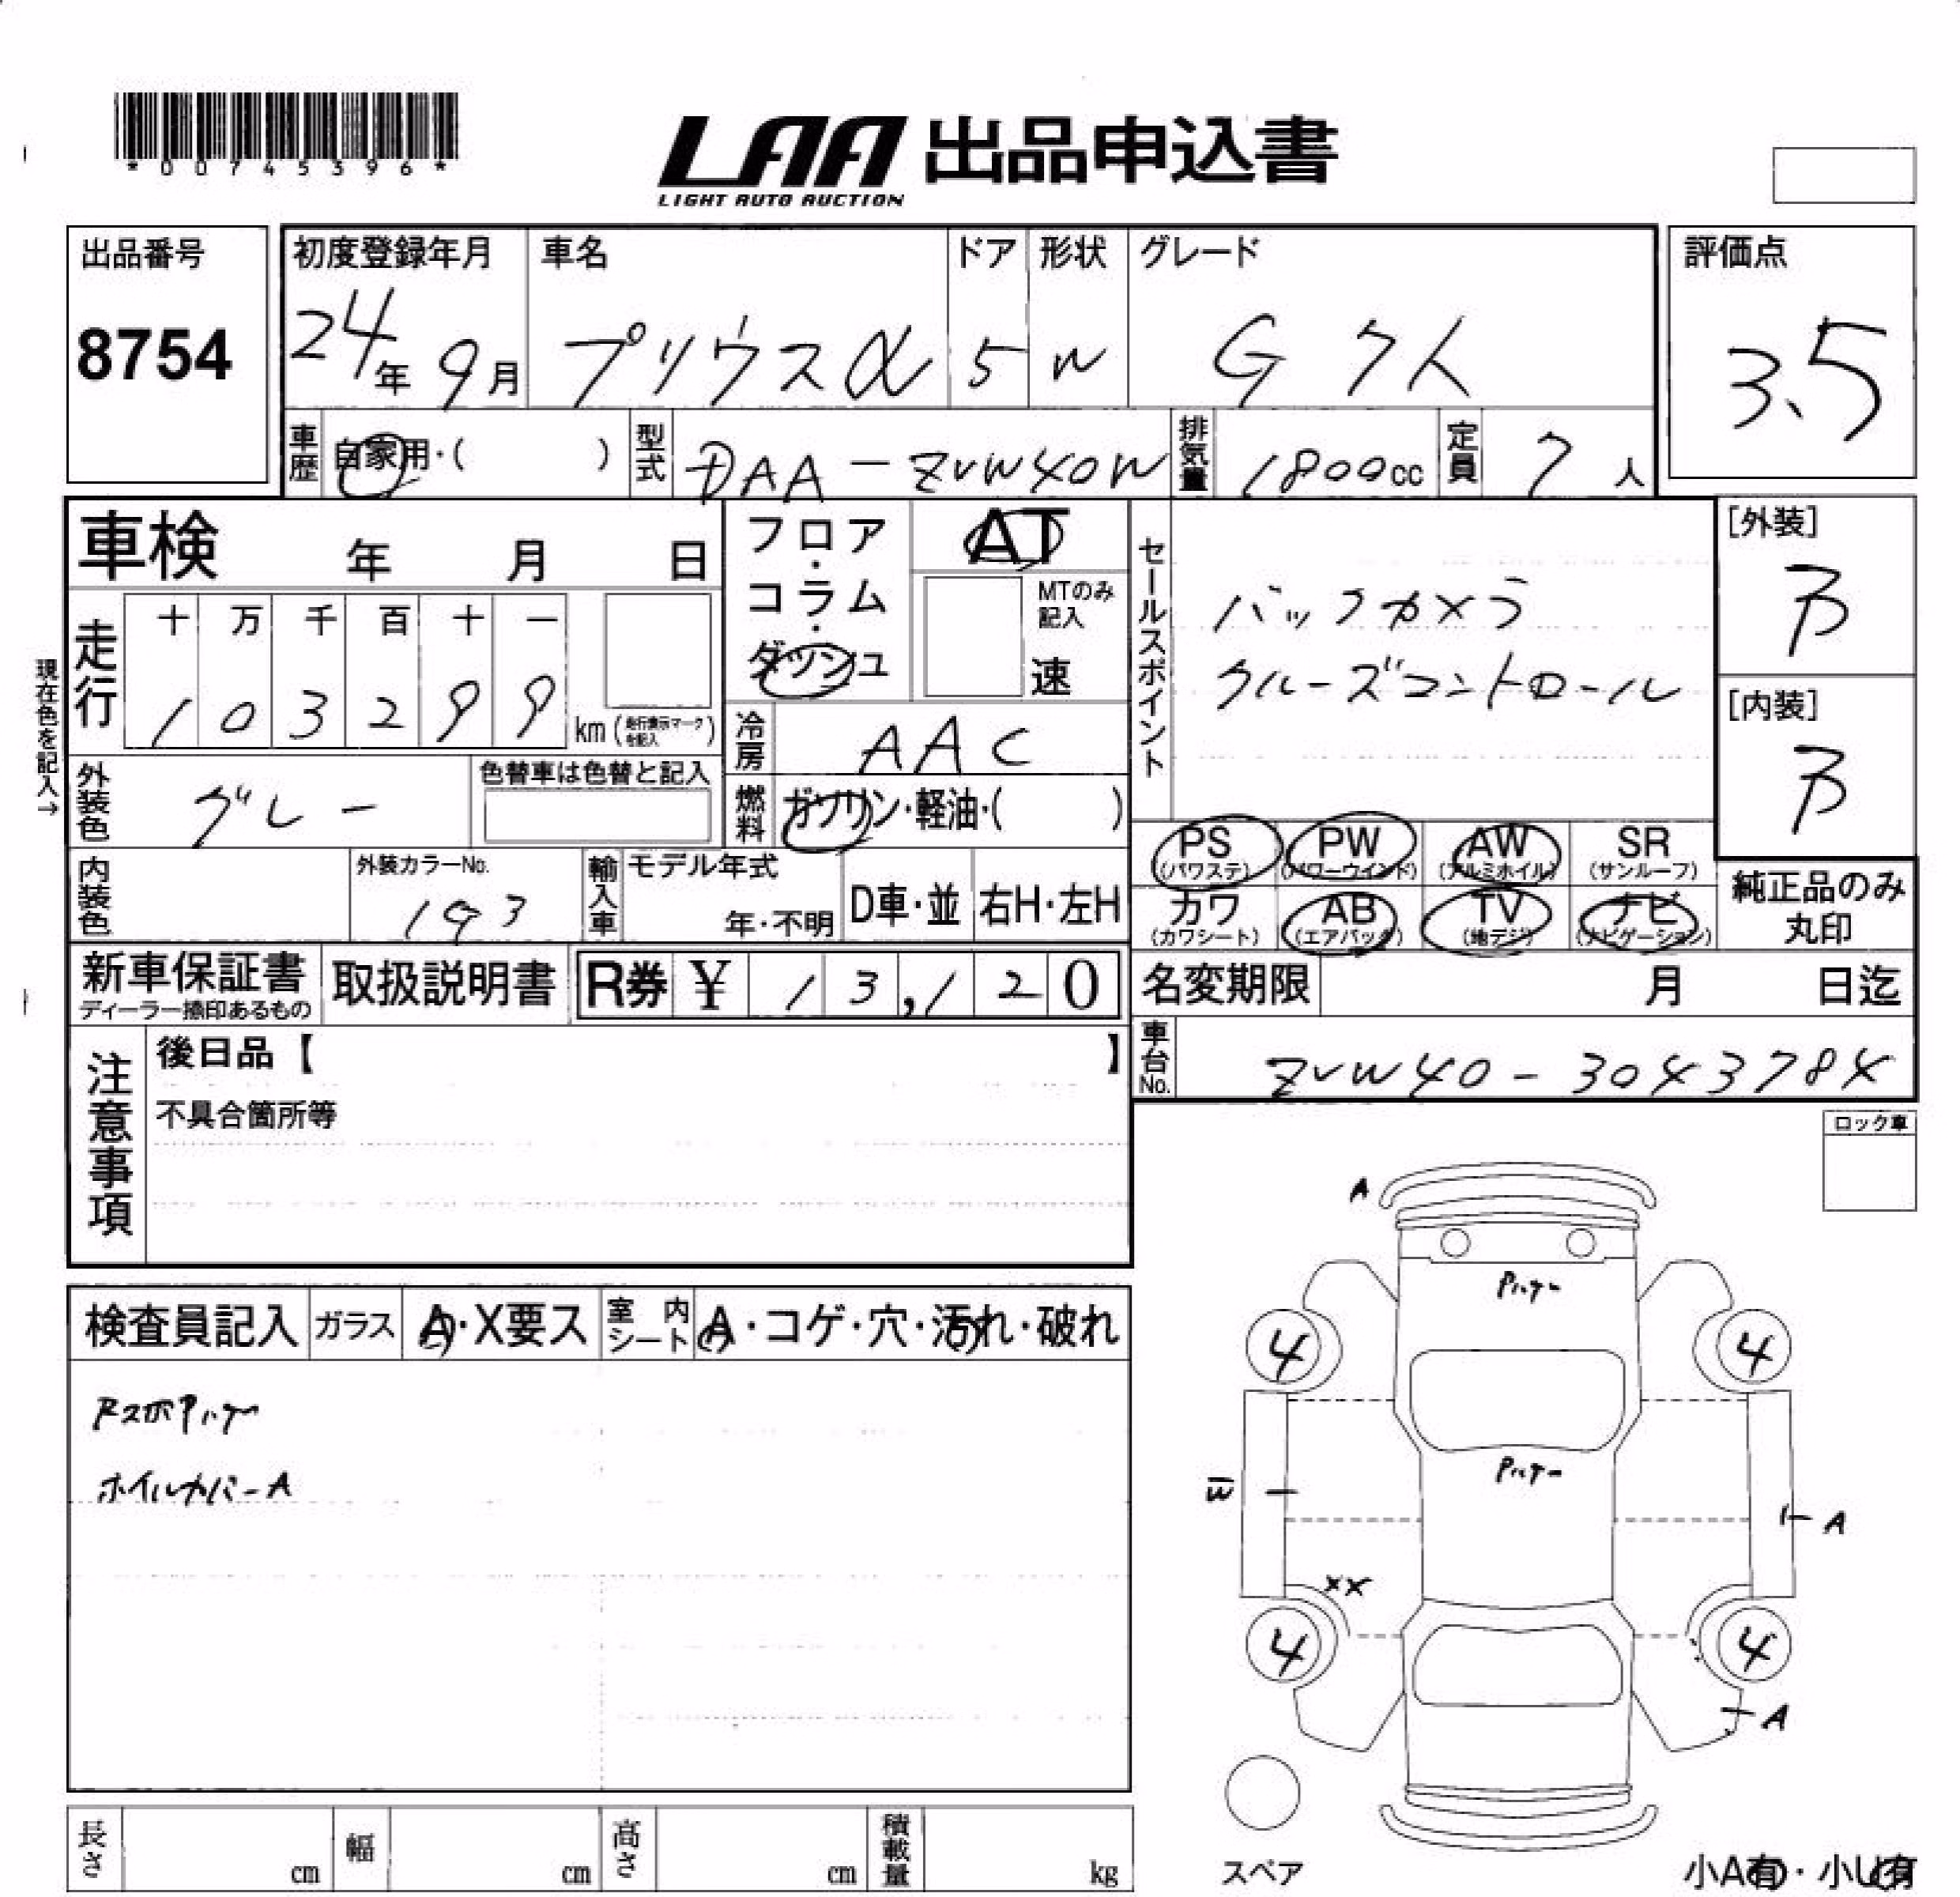 *00745396*
LAA 出品申込書
LIGHT AUTO AUCTION
出品番号
8754
初度登録年月
24年 9月
車名
プリウスα
ドア
5
形状
W
グレード
G 7人
評価点
3.5
車歴 自家用・( )
型式 DAA-ZVW40W
排気量 1800cc
定員 7人
車検 年 月 日
フロア・コラム・ダッシュ
AT
MTのみ記入
速
セールスポイント
バックカメラ
クルーズコントロール
[外装]
B
[内装]
B
現在色を記入→
走行
十 万 千 百 十 一
1 0 3 2 9 9
km (走行表示マークを記入)
冷房 AAC
外装色 グレー
色替車は色替と記入
燃料 ガソリン・軽油・( )
PS (パワステ) PW (パワーウインド) AW (アルミホイル) SR (サンルーフ)
カワ (カワシート) AB (エアバック) TV (地デジ) ナビ (ナビゲーション)
純正品のみ丸印
内装色
外装カラーNo.
193
輸入車 モデル年式
年・不明
D車・並
右H・左H
新車保証書
ディーラー捺印あるもの
取扱説明書
R券 ¥ 13,120
名変期限 月 日迄
車台No. ZVW40-3043784
注意事項
後日品【 】
不具合箇所等
ロック車
検査員記入 ガラス A・X要ス 室内シート A・コゲ・穴・汚れ・破れ
ホイルカバーA
A
4 4
W1
A
XX
4 4
A
スペア
長さ cm 幅 cm 高さ cm 積載量 kg
小A有・小U有